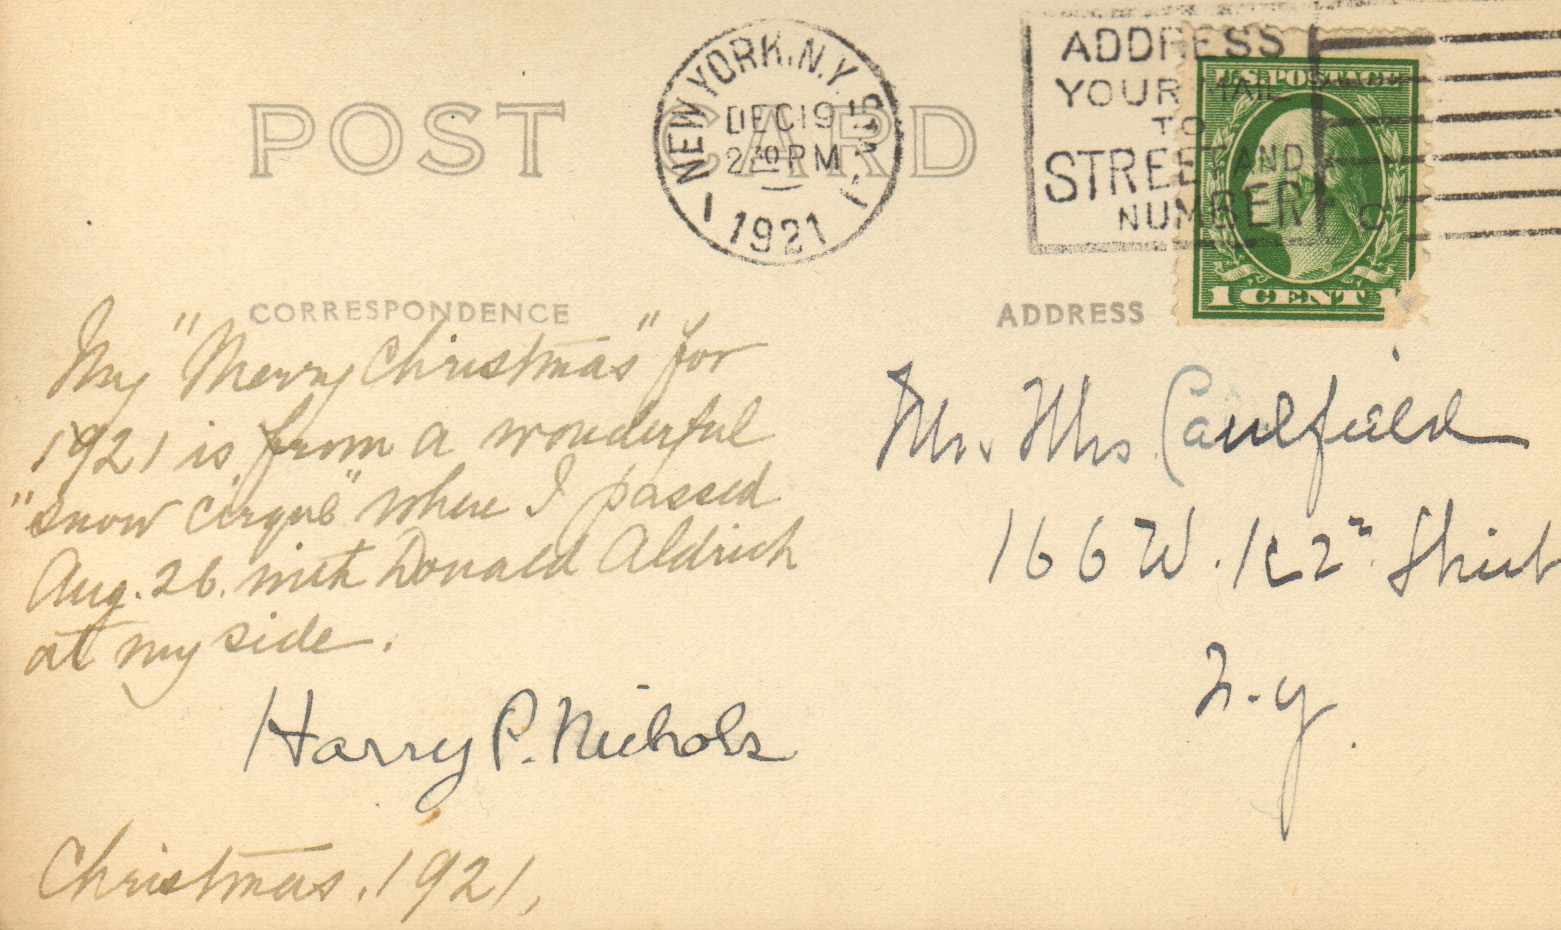 POST CARD
NEW YORK, N.Y.
DEC 19
2 30 PM
1921
ADDRESS
YOUR MAIL
TO
STREET AND
NUMBER
U.S. POSTAGE
1 CENT 1
CORRESPONDENCE
ADDRESS
My "Merry Christmas" for
1921 is from a wonderful
"snow cirque" where I passed
Aug. 26. with Donald Aldrich
at my side.
Harry P. Nichols
Christmas. 1921,
Mr. Mrs Caulfield
166 W. Street
N.Y.